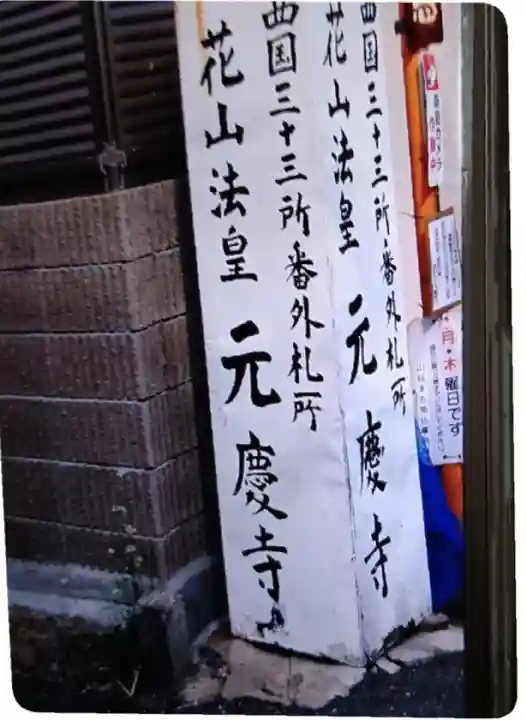 西国三十三所番外札所
花山法皇 元慶寺
西国三十三所番外札所
花山法皇 元慶寺
防犯カメラ
作動中
月・木曜日です